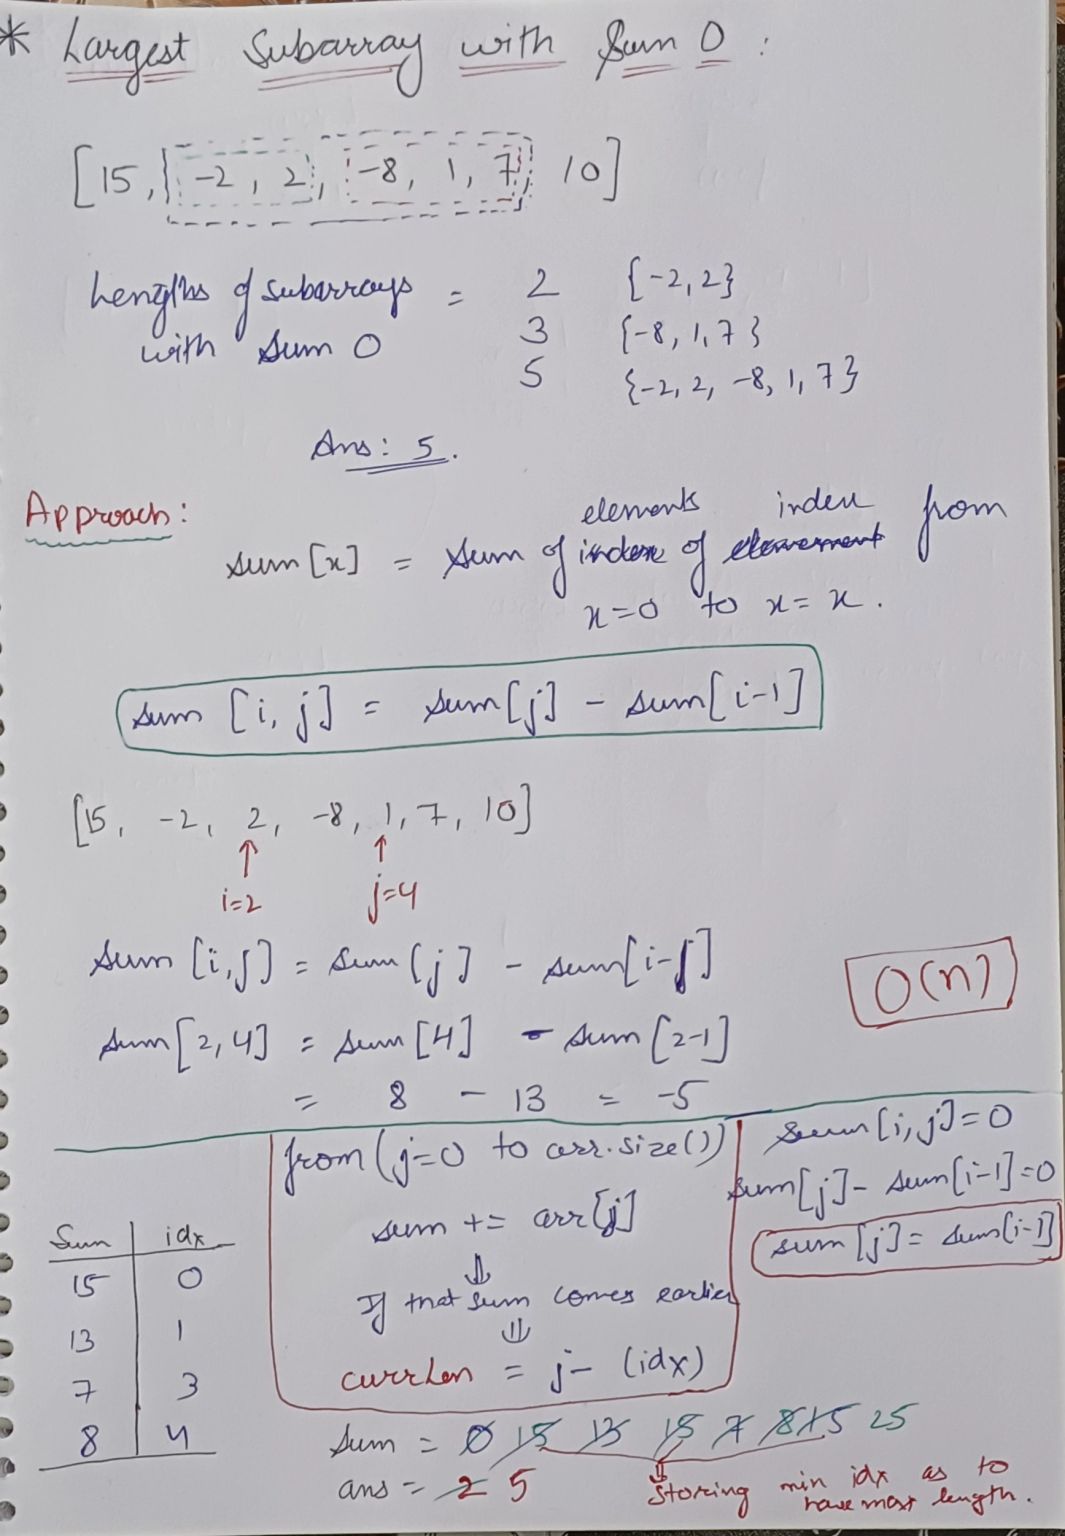 * Largest Subarray with Sum 0 :
[15, -2, 2, -8, 1, 7, 10]
Lengths of subarrays = 2 {-2, 2}
with sum 0 3 {-8, 1, 7}
5 {-2, 2, -8, 1, 7}
Ans: 5.
Approach:
elements index
sum [x] = sum of index of element from
x=0 to x=x.
sum [i, j] = sum[j] - sum[i-1]
[15, -2, 2, -8, 1, 7, 10]
↑ ↑
i=2 j=4
sum [i, j] = sum [j] - sum[i-1]
O(n)
sum [2, 4] = sum [4] - sum [2-1]
= 8 - 13 = -5
from (j=0 to arr.size())
sum += arr[j]
⇓
If that sum comes earlier
⇓
currLen = j - (idx)
sum[i, j] = 0
sum[j] - sum[i-1] = 0
sum [j] = sum[i-1]
Sum | idx
15 | 0
13 | 1
7 | 3
8 | 4
sum = 0 15 13 15 7 8 15 25
ans = 2 5
storing min idx as to
have most length.